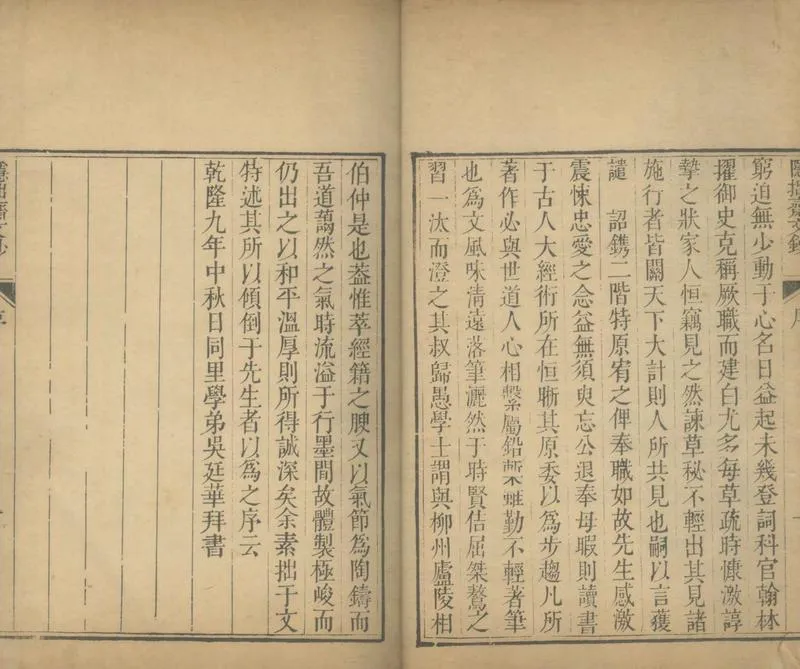 隱拙齋文鈔
序
窮迫無少動于心名日益起未幾登詞科官翰林
擢御史克稱厥職而建白尤多每草疏時慷激諄
摯之狀家人恒竊見之然諫草秘不輕出其見諸
施行者皆關天下大計則人所共見也嗣以言獲
譴 詔鐫二階特原宥之俾奉職如故先生感激
震悚忠愛之念益無須臾忘公退奉母暇則讀書
于古人大經術所在恒晰其原委以為步趨凡所
著作必與世道人心相繫屬鉛槧雖勤不輕著筆
也為文風味清遠落筆灑然于時賢佶屈桀驁之
習一汰而澄之其叔歸愚學士謂與柳州廬陵相
伯仲是也葢惟萃經籍之腴又以氣節為陶鑄而
吾道藹然之氣時流溢于行墨間故體製極峻而
仍出之以和平溫厚則所得誠深矣余素拙于文
特述其所以傾倒于先生者以為之序云
乾隆九年中秋日同里學弟吳廷華拜書
隱拙齋文鈔
序